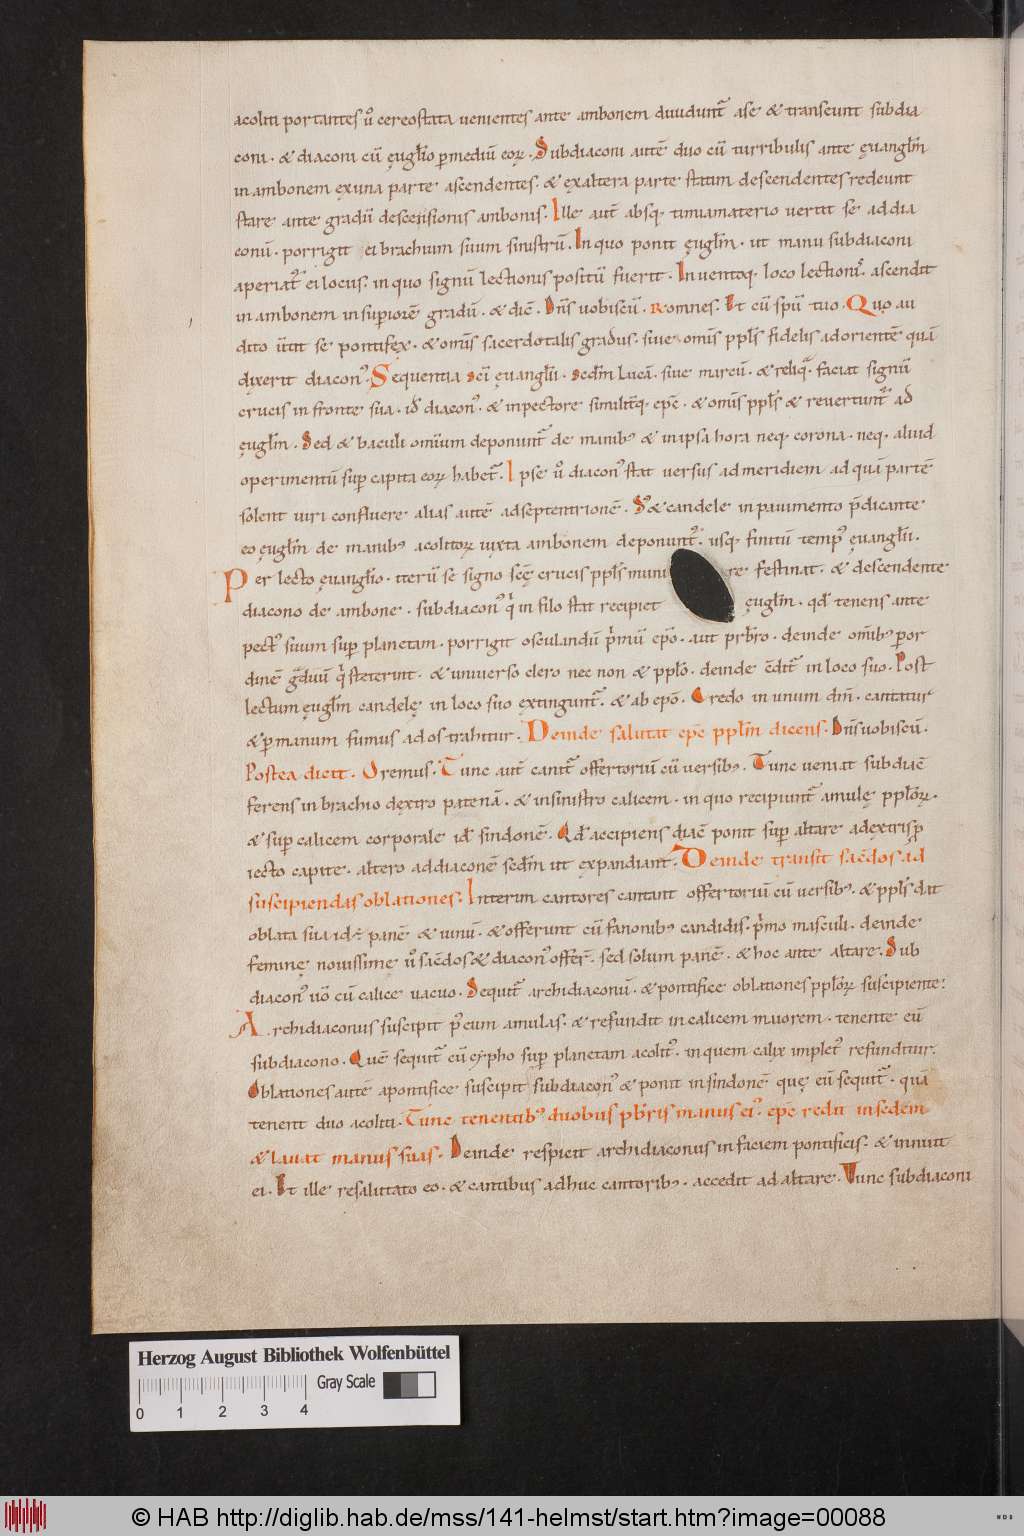 acoliti portantes ů cereostata uenientes ante ambonem diuidunt̃ a se & transeunt subdia
coni · & diaconi cū ęuglĩo p mediū eoꝝ · Subdiaconi autē duo cū turribulis ante ęuanglĩm
in ambonem ex una parte ascendentes · & ex altera parte statim descendentes redeunt
stare ante gradū descensionis ambonis · Ille aut̃ absq; timiamaterio uertit se ad dia
conū · porrigit ei brachium suum sinistrū · In quo ponit ęuglĩm · ut manu subdiaconi
aperiat̃ ei locus · in quo signū lectionis positū fuerit · Inuentoq; loco lectioniˀ · ascendit
in ambonem in supiorē gradū · & dic̃ · Dñs uobiscū · R omnes · Et cū spũ tuo · Quo au
dito uertit se pontifex · & om̃is sacerdotalis gradus · siue om̃is ppl̃s fidelis ad orientē quā
dixerit diaconˀ · Sequentia sc̃i ęuanglĩi · scdm̃ Lucā · siue marcū · & reliq̃ · faciat signū
crucis in fronte sua · id̃ diaconˀ · & in pectore similit̃q; ep̃c · & om̃is ppl̃s & reuertunt̃ ad
ęuglĩm · Sed & baculi omnium deponunt̃ de manibˀ & in ipsa hora neq; corona · neq; aliud
operimentū sup capita eoꝝ habet̃ · Ipse ů diaconˀ stat uersus ad meridiem ad quā partē
solent uiri confluere alias autē ad septentrionē · S; & candele in pauimento p̃dicante
eo ęuglĩm de manibˀ acolitoꝝ iuxta ambonem deponunt̃ · usq; finitū tempˀ ęuanglĩi ·
Per lecto ęuanglĩo · iterū se signo sc̃ę crucis ppl̃s muni re festinat · & descendente
diacono de ambone · subdiaconˀ q̇ in filo stat recipiet ęuglĩm · qd̃ tenens ante
pectˀ suum sup planetam · porrigit osculandū p̃mū ep̃o · aut prb̃ro · deinde om̃ibˀ p or
dinē g̃duū q̇ steterint · & uniuerso clero nec non & pplõ · deinde c̃dit̃ in loco suo · Post
lectum ęuglĩm candelę in loco suo extingunt̃ · & ab ep̃o · Credo in unum dm̃ · cantatur
& p manum fumus ad os trahitur · Deinde salutat ep̃c pplĩm dicens · Dñs uobiscū ·
Postea dicit · Oremus · Tunc aut̃ canit̃ offertoriū cū uersibˀ · Tunc ueniat subdiac̃
ferens in brachio dextro patenā · & in sinistro calicem · in quo recipiunt̃ amulę pplõꝝ ·
& sup calicem corporale id̃ sindonē · Qd̃ accipiens diac̃ ponit sup altare a dextris p
iecto capite · altero ad diaconē sedm̃ ut expandiant · Deinde transit sac̃dos ad
suscipiendas oblationes · Interim cantores cantant offertoriū cū uersibˀ · & ppl̃s dat
oblata sua id ē panē & uinū · & offerunt cū fanonibˀ candidis · p̃mo masculi · deinde
feminę nouissime ů sac̃dos & diaconˀ offer̃ · sed solum panē · & hoc ante altare · Sub
diaconˀ uõ cū calice uacuo · Sequit̃ archidiaconū · & pontifice oblationes pplõꝝ suscipiente :
Archidiaconus suscipit p̃ eum amulas · & refundit in calicem maiorem · tenente eū
subdiacono · Quē sequit̃ cū cypho sup planetam acolitˀ · in quem calix impletˀ refunditur ·
Oblationes autē a pontifice suscipit subdiaconˀ & ponit in sindonē quę eū sequit̃ · quā
tenent duo acoliti · Tunc tenentibˀ duobus pb̃ris manus eiˀ · ep̃c redit in sedem
& lauat manus suas · Deinde respicit archidiaconus in faciem pontificis · & innuit
ei · Et ille resalutato eo · & cantibus adhuc cantoribˀ · accedit ad altare · Tunc subdiaconi
Herzog August Bibliothek Wolfenbüttel
Gray Scale
0 1 2 3 4
© HAB http://diglib.hab.de/mss/141-helmst/start.htm?image=00088